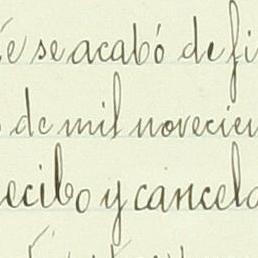 se acabó de fi
de mil novecien
ecibo y cancela